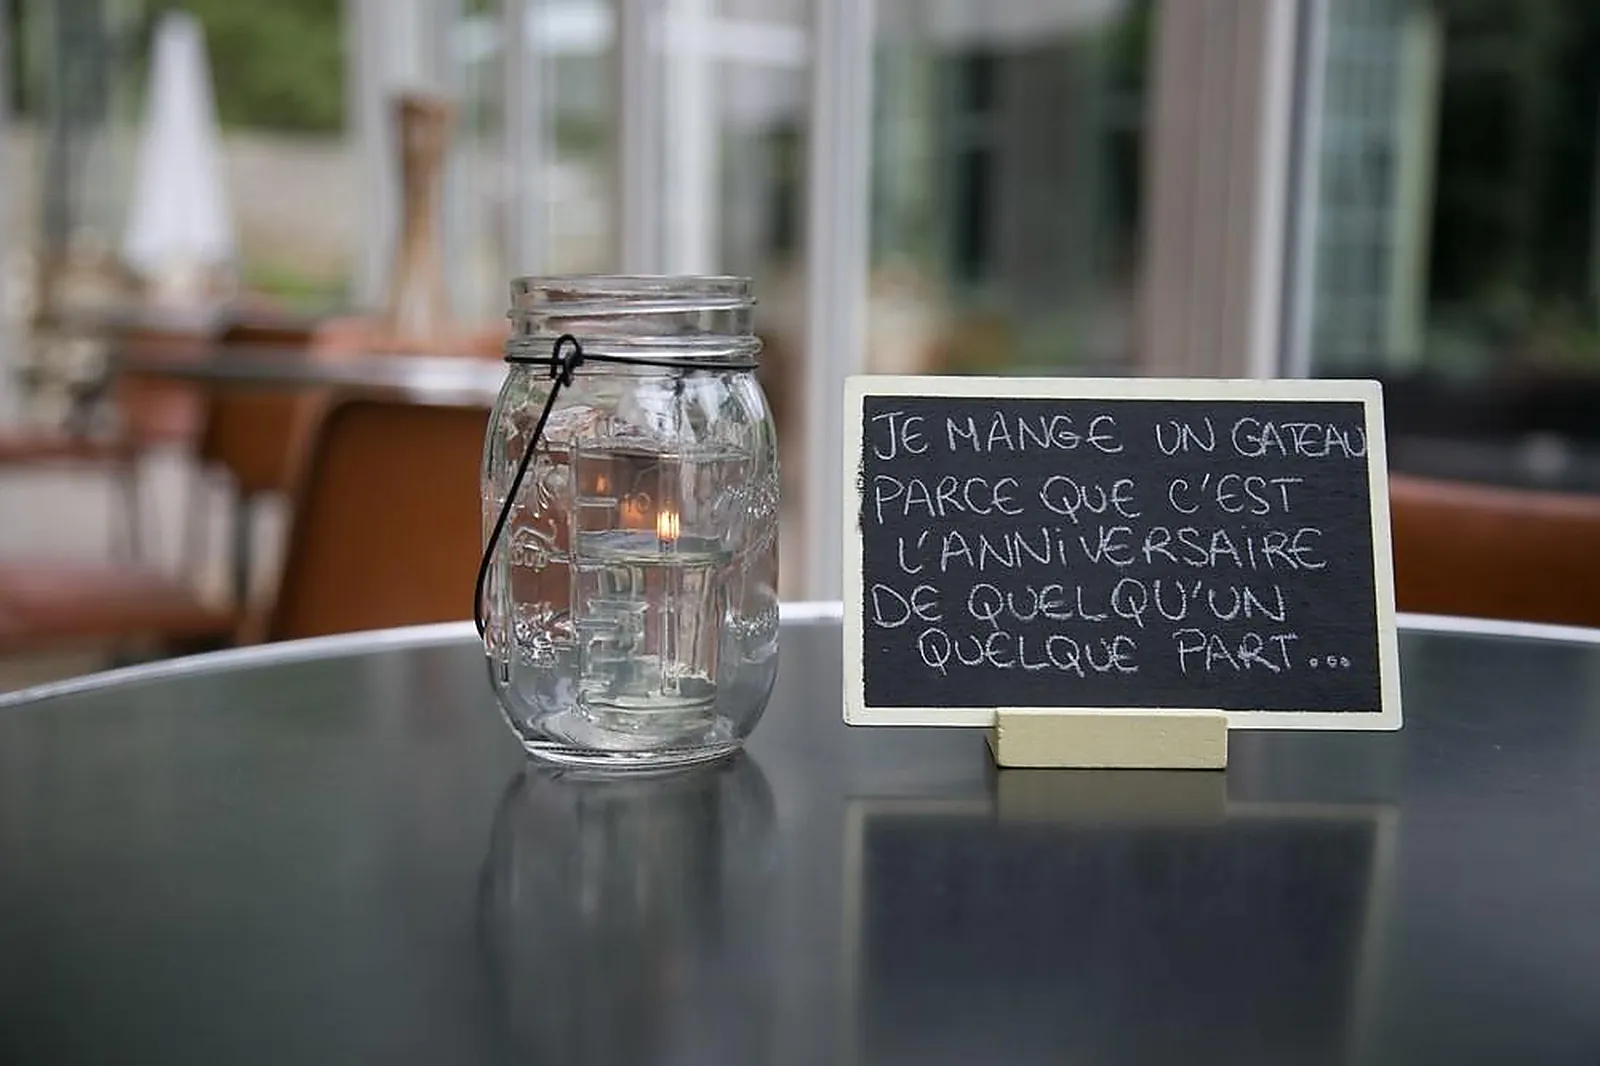 JE MANGE UN GATEAU
PARCE QUE C'EST
L'ANNiVERSAiRE
DE QUELQU'UN
QUELQUE PART...